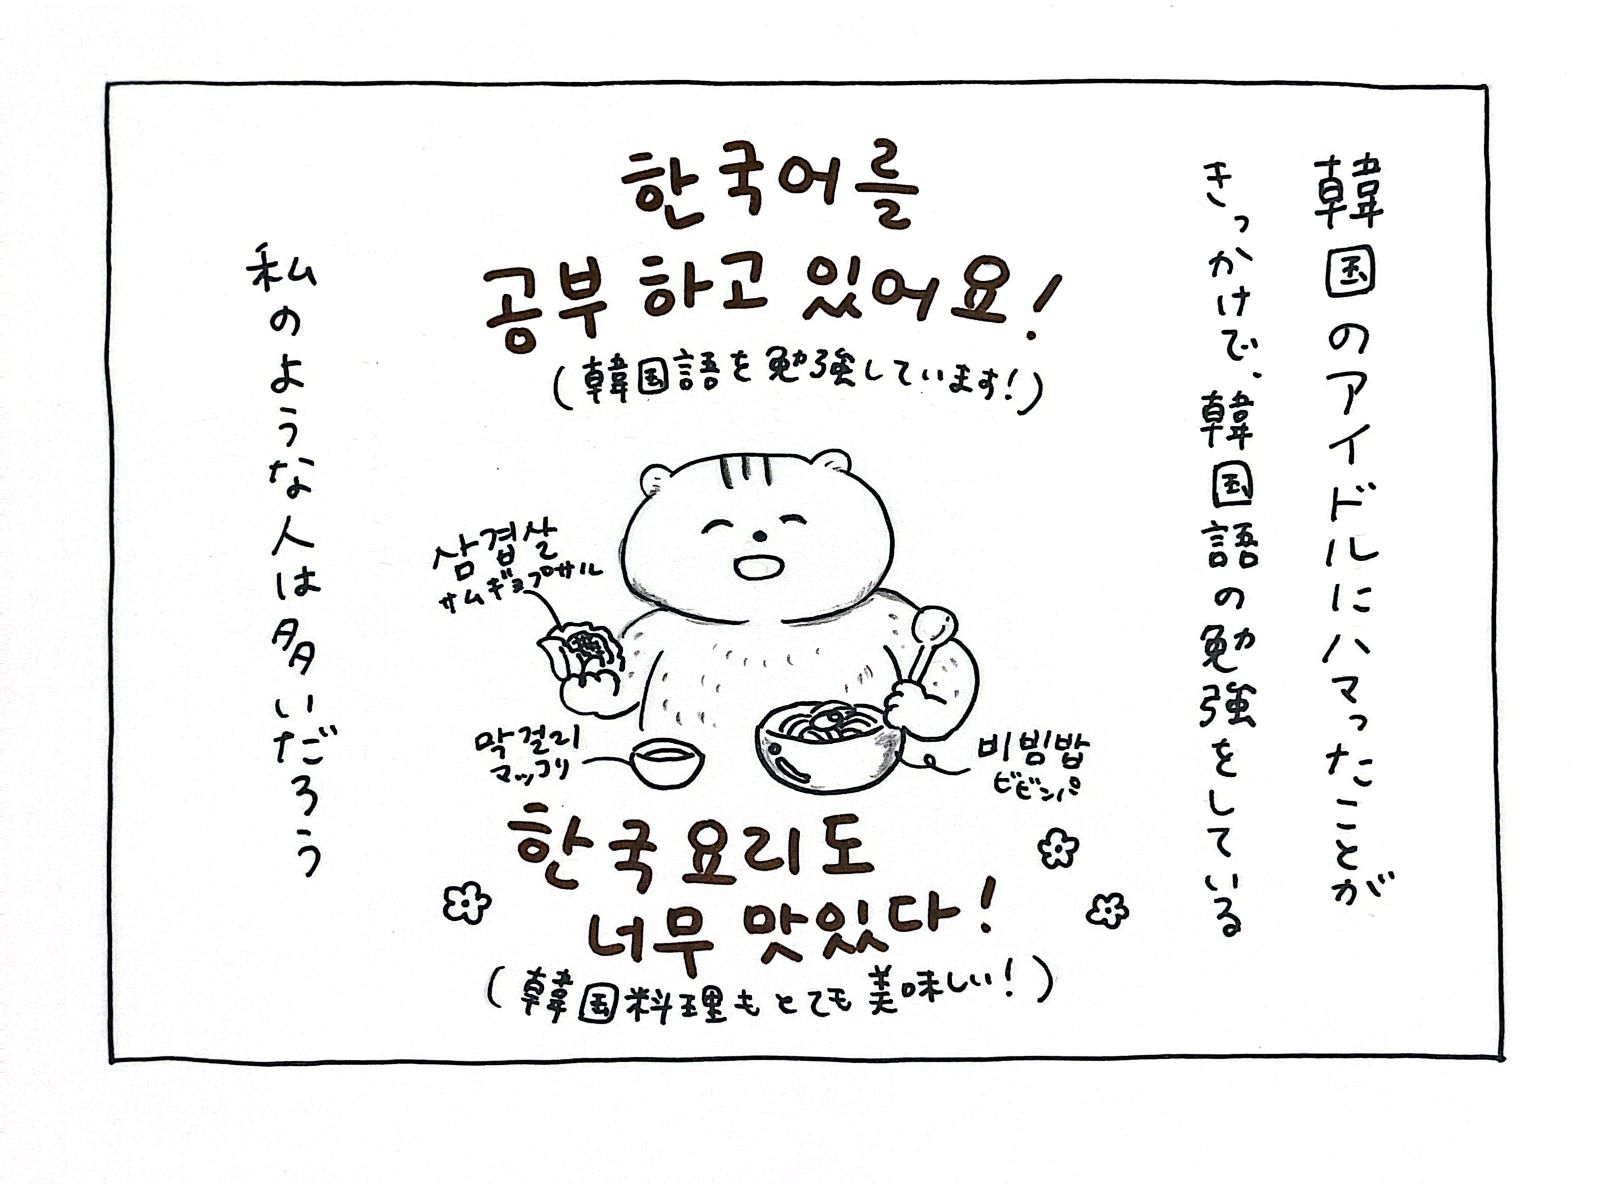 韓国のアイドルにハマったことが
きっかけで、韓国語の勉強をしている
한국어를
공부하고 있어요!
(韓国語を勉強しています!)
삼겹살
サムギョプサル
막걸리
マッコリ
비빔밥
ビビンパ
한국요리도
너무 맛있다!
(韓国料理もとても美味しい!)
私のような人は多いだろう